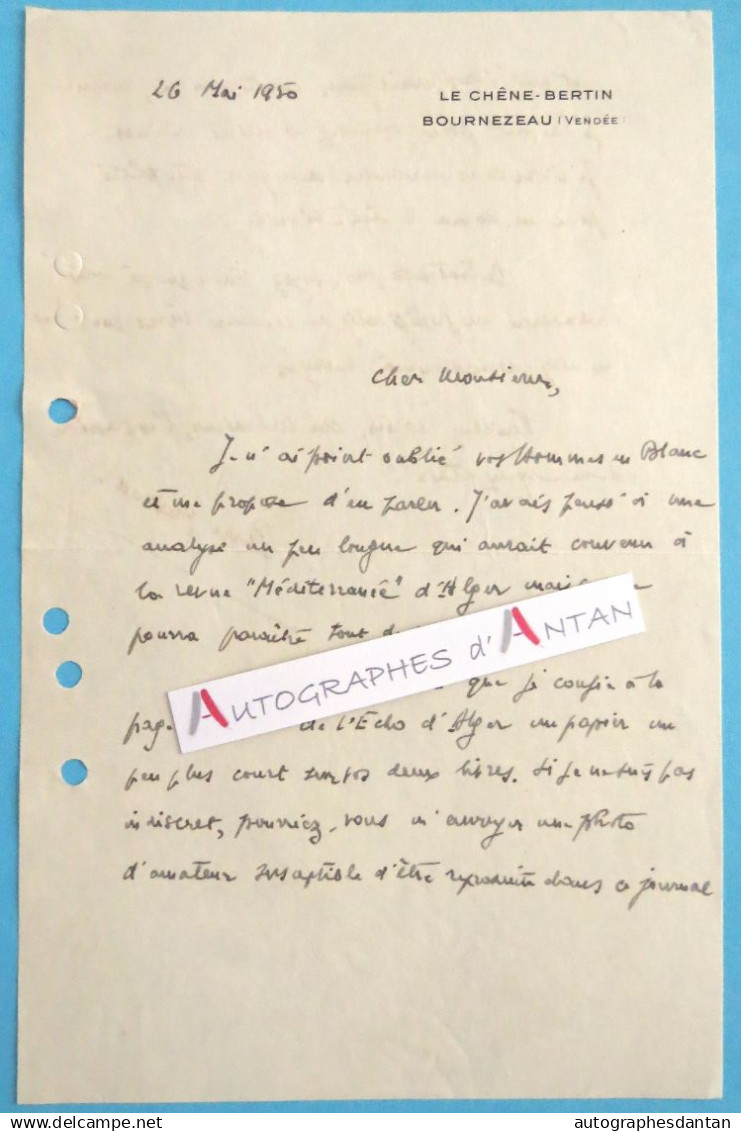 26 Mai 1950
LE CHÊNE-BERTIN
BOURNEZEAU (VENDÉE)
Cher Monsieur,
Je n'ai point oublié vos Hommes en Blanc
et me propose d'en parler. J'avais pensé à une
analyse un peu longue qui aurait convenu à
la revue "Méditerranée" d'Alger mais
pourra paraître tout
AUTOGRAPHES d'ANTAN
que je confie à la
page de l'Echo d'Alger un papier un
peu plus court sur vos deux livres. Si je ne suis pas
indiscret, pourriez-vous m'envoyer une photo
d'amateur susceptible d'être reproduite dans ce journal
delcampe.net
autographesdantan